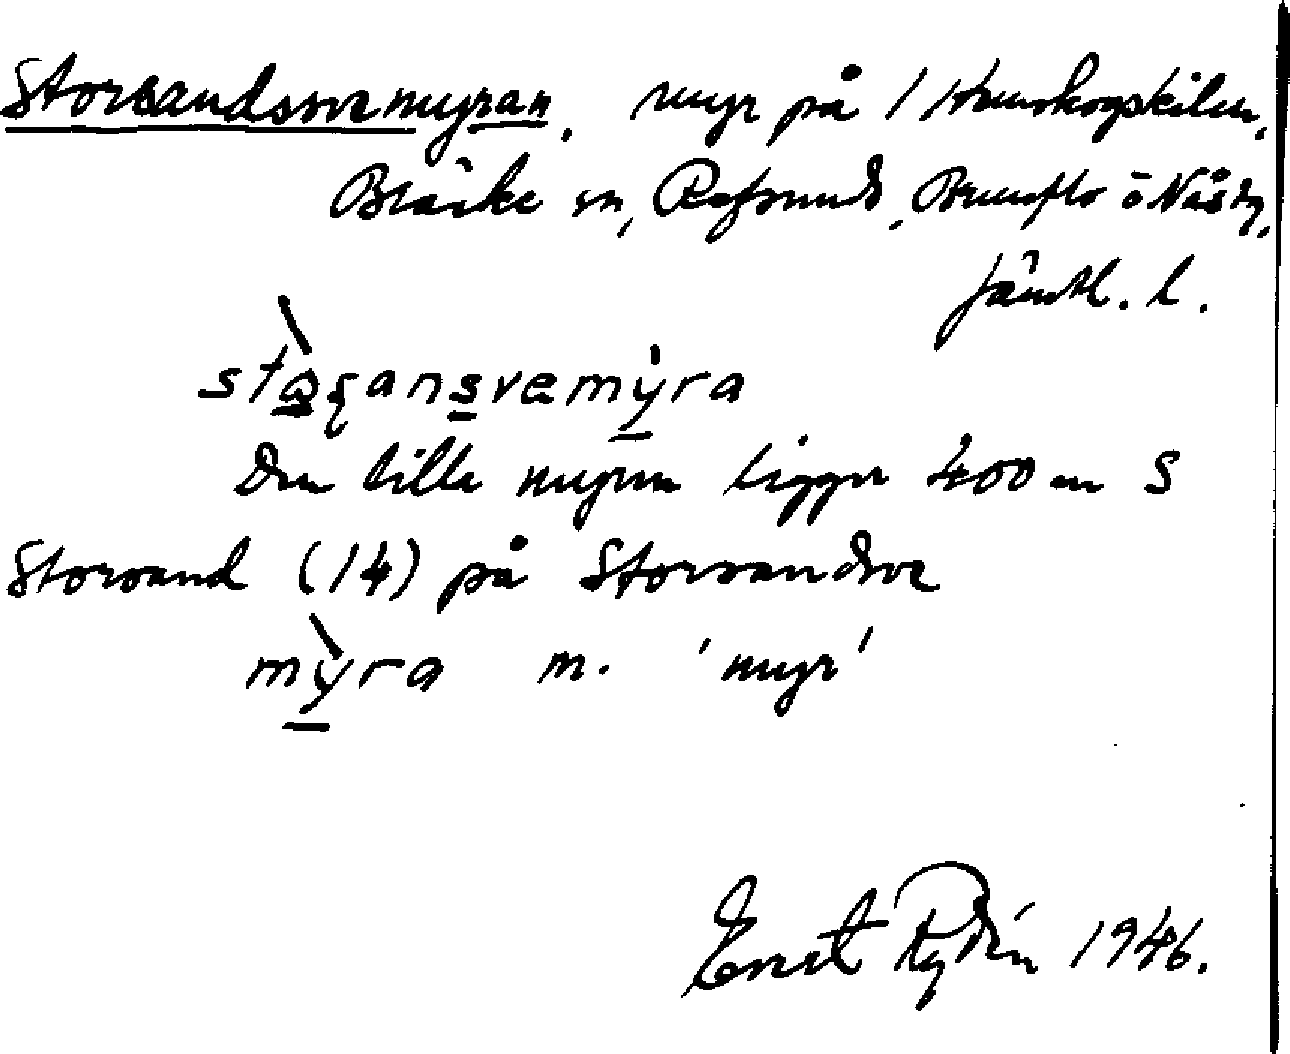 Storsandssvemyran, myr på 1 Kronskogskilen,
Bräcke sn, Refsund, Brunflo o Näs tg,
Jämtl. l.
stą̀ʂansvemýra
Den lilla myren ligger 400 m S
Storsand (14) på Storsandsve
mỳra m. 'myr'
Ernst Rydén 1946.